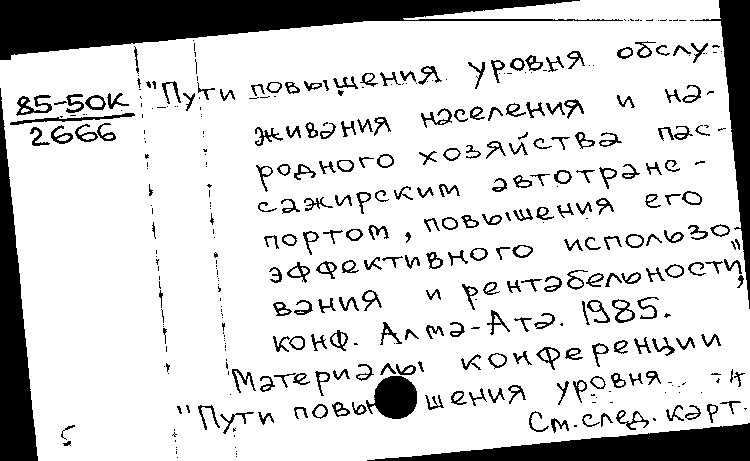 85-50К
2666
"Пути повышения уровня обслу-
живания населения и на-
родного хозяйства пас-
сажирским автотранс-
портом, повышения его
эффективного использо-
вания и рентабельности",
конф. Алма-Ата. 1985.
Материалы конференции
"Пути повышения уровня
См. след. карт.
5